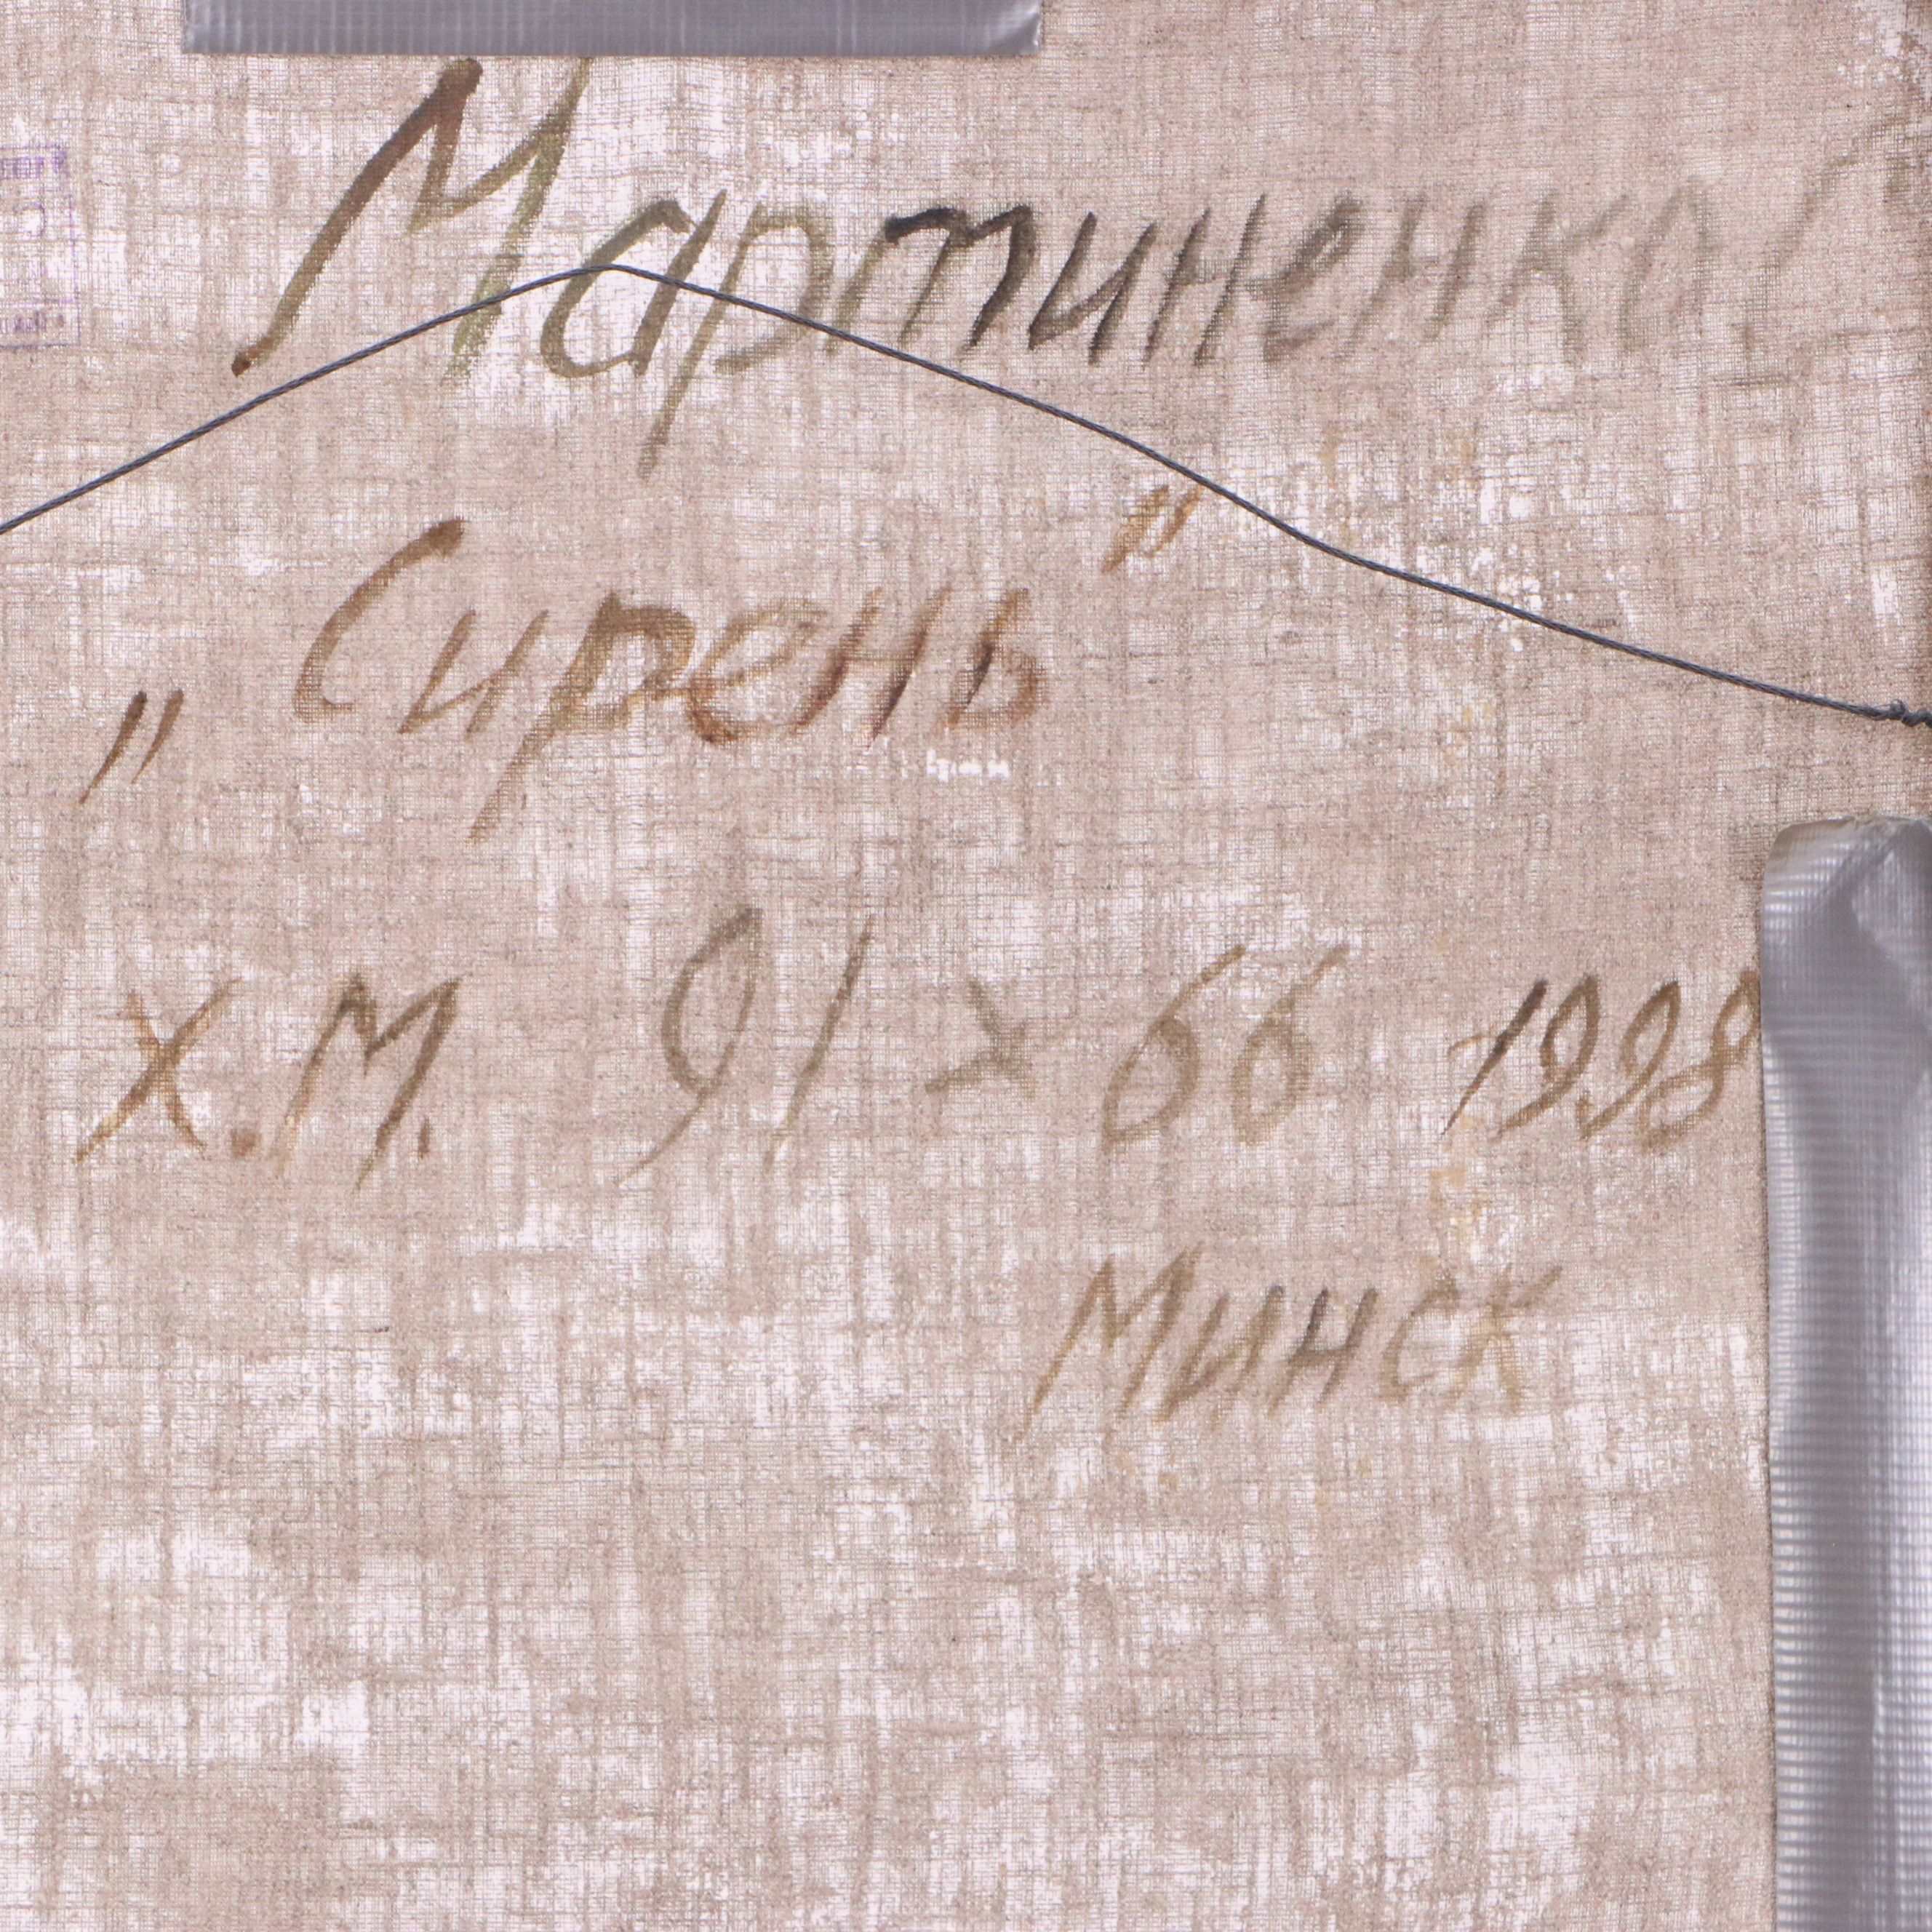 Мартиненко
„Сирень"
Х.М. 91 х 66 1998
Минск